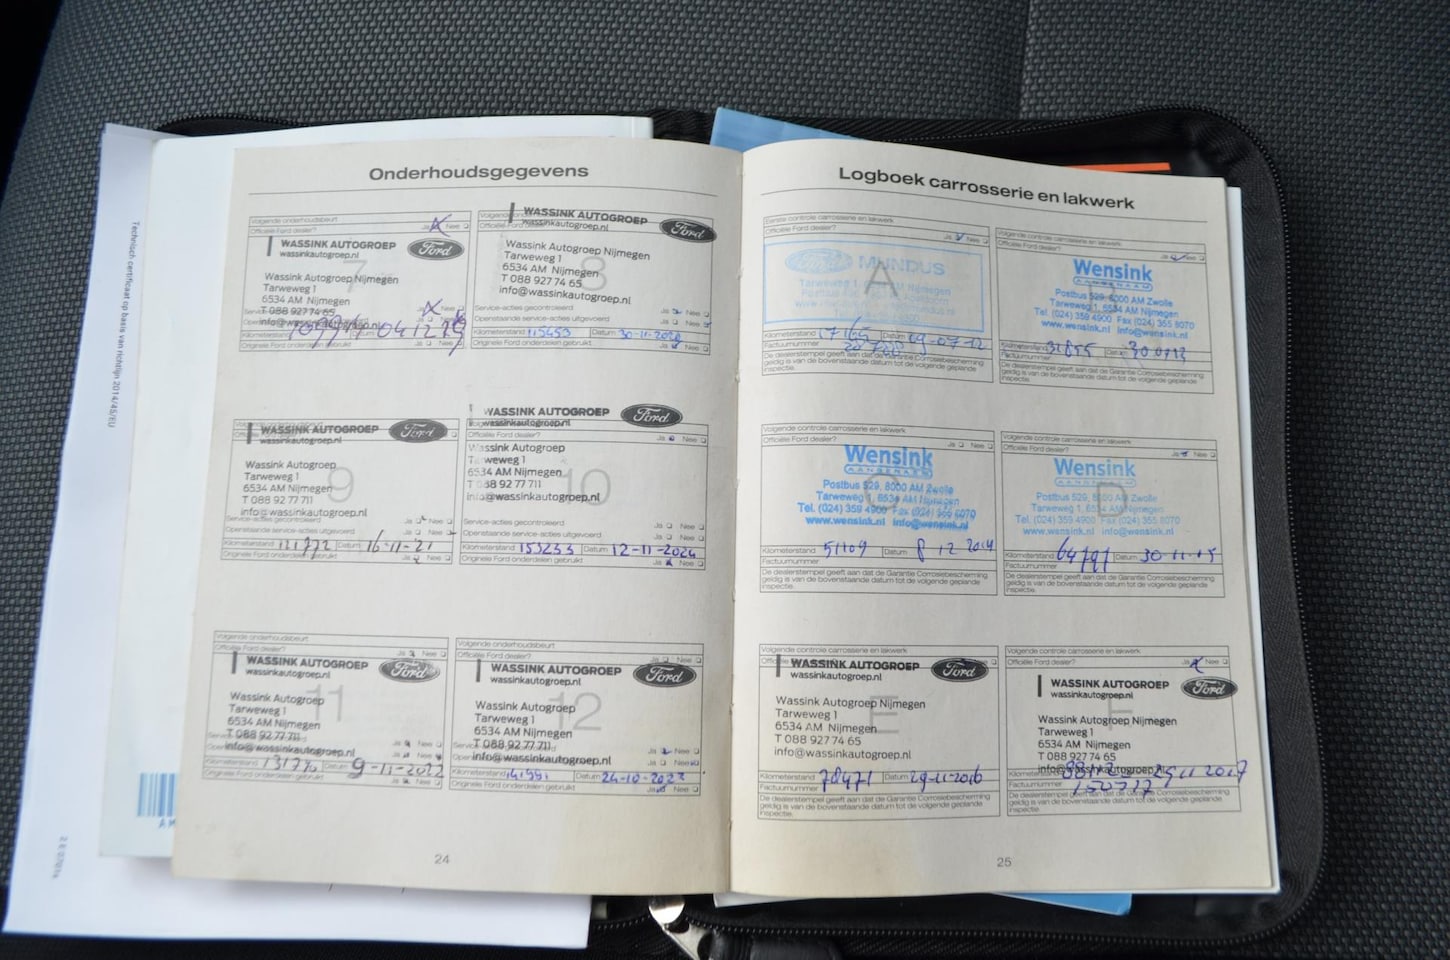 Onderhoudsgegevens
Volgende onderhoudsbeurt
Officiële Ford dealer? Ja Nee
WASSINK AUTOGROEP
wassinkautogroep.nl
Ford
Wassink Autogroep Nijmegen
Tarweweg 1
6534 AM Nijmegen
T 088 927 74 65
info@wassinkautogroep.nl
Ja Nee
Kilometerstand Datum
Originele Ford onderdelen gebruikt Ja Nee
7
WASSINK AUTOGROEP
wassinkautogroep.nl
Ford
Officiële Ford dealer?
Wassink Autogroep Nijmegen
Tarweweg 1
6534 AM Nijmegen
T 088 927 74 65
info@wassinkautogroep.nl
8
Service-acties gecontroleerd Ja Nee
Openstaande service-acties uitgevoerd Ja Nee
Kilometerstand 115453 Datum 30-11-2020
Originele Ford onderdelen gebruikt Ja Nee
WASSINK AUTOGROEP
wassinkautogroep.nl
Ford
Wassink Autogroep
Tarweweg 1
6534 AM Nijmegen
T 088 92 77 711
info@wassinkautogroep.nl
9
Service-acties gecontroleerd Ja Nee
Openstaande service-acties uitgevoerd Ja Nee
Kilometerstand 121772 Datum 16-11-21
Originele Ford onderdelen gebruikt Ja Nee
WASSINK AUTOGROEP
wassinkautogroep.nl
Ford
Officiële Ford dealer? Ja Nee
Wassink Autogroep
Tarweweg 1
6534 AM Nijmegen
T 088 92 77 711
info@wassinkautogroep.nl
10
Service-acties gecontroleerd Ja Nee
Openstaande service-acties uitgevoerd Ja Nee
Kilometerstand 153233 Datum 12-11-2024
Originele Ford onderdelen gebruikt Ja Nee
Volgende onderhoudsbeurt
Officiële Ford dealer? Ja Nee
WASSINK AUTOGROEP
wassinkautogroep.nl
Ford
Wassink Autogroep
Tarweweg 1
6534 AM Nijmegen
T 088 92 77 711
info@wassinkautogroep.nl
11
Ja Nee
Kilometerstand 131770 Datum 9-11-2022
Originele Ford onderdelen gebruikt Ja Nee
Volgende onderhoudsbeurt
Officiële Ford dealer? Ja Nee
WASSINK AUTOGROEP
wassinkautogroep.nl
Ford
Wassink Autogroep
Tarweweg 1
6534 AM Nijmegen
T 088 92 77 711
info@wassinkautogroep.nl
12
Ja Nee
Kilometerstand 141991 Datum 24-10-2023
Originele Ford onderdelen gebruikt Ja Nee
24
Logboek carrosserie en lakwerk
Eerste controle carrosserie en lakwerk
Officiële Ford dealer? Ja Nee
Ford MUNDUS
A
Kilometerstand 17165 Datum 09-07-12
Factuurnummer
De dealerstempel geeft aan dat de Garantie Corrosiebescherming
geldig is van de bovenstaande datum tot de volgende geplande
inspectie.
Volgende controle carrosserie en lakwerk
Officiële Ford dealer? Ja Nee
Wensink
AANGENAAM
Postbus 529, 8000 AM Zwolle
Tarweweg 1, 6534 AM Nijmegen
Tel. (024) 359 4900 Fax (024) 355 8070
www.wensink.nl info@wensink.nl
Kilometerstand Datum
Factuurnummer
De dealerstempel geeft aan dat de Garantie Corrosiebescherming
geldig is van de bovenstaande datum tot de volgende geplande
inspectie.
Volgende controle carrosserie en lakwerk
Officiële Ford dealer? Ja Nee
Wensink
AANGENAAM
Postbus 529, 8000 AM Zwolle
Tarweweg 1, 6534 AM Nijmegen
Tel. (024) 359 4900 Fax (024) 355 8070
www.wensink.nl info@wensink.nl
C
Kilometerstand 51109 Datum 8 12 2014
Factuurnummer
De dealerstempel geeft aan dat de Garantie Corrosiebescherming
geldig is van de bovenstaande datum tot de volgende geplande
inspectie.
Volgende controle carrosserie en lakwerk
Officiële Ford dealer? Ja Nee
Wensink
AANGENAAM
Postbus 529, 8000 AM Zwolle
Tarweweg 1, 6534 AM Nijmegen
Tel. (024) 359 4900 Fax (024) 355 8070
www.wensink.nl info@wensink.nl
D
Kilometerstand 64791 Datum 30-11-15
Factuurnummer
De dealerstempel geeft aan dat de Garantie Corrosiebescherming
geldig is van de bovenstaande datum tot de volgende geplande
inspectie.
Volgende controle carrosserie en lakwerk
WASSINK AUTOGROEP
wassinkautogroep.nl
Ford
Wassink Autogroep Nijmegen
Tarweweg 1
6534 AM Nijmegen
T 088 927 74 65
info@wassinkautogroep.nl
E
Kilometerstand 78471 Datum 29-11-2016
Factuurnummer
De dealerstempel geeft aan dat de Garantie Corrosiebescherming
geldig is van de bovenstaande datum tot de volgende geplande
inspectie.
Volgende controle carrosserie en lakwerk
Officiële Ford dealer? Ja Nee
WASSINK AUTOGROEP
wassinkautogroep.nl
Ford
Wassink Autogroep Nijmegen
Tarweweg 1
6534 AM Nijmegen
T 088 927 74 65
info@wassinkautogroep.nl
F
Kilometerstand 11 2017
Factuurnummer
De dealerstempel geeft aan dat de Garantie Corrosiebescherming
geldig is van de bovenstaande datum tot de volgende geplande
inspectie.
25
Technisch certificaat op basis van richtlijn 2014/45/EU